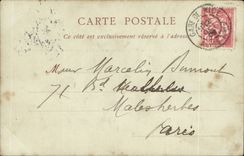 CARTE POSTALE
Ce côté est exclusivement réservé à l'adresse
Marcelin Dumont
71 Bd Malesherbes
Malesherbes
Paris